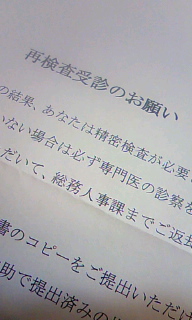 再検査受診のお願い
の結果、あなたは精密検査が必要
いない場合は必ず専門医の診察を
だいて、総務人事課までご返
書のコピーをご提出いただけ
助で提出済みの